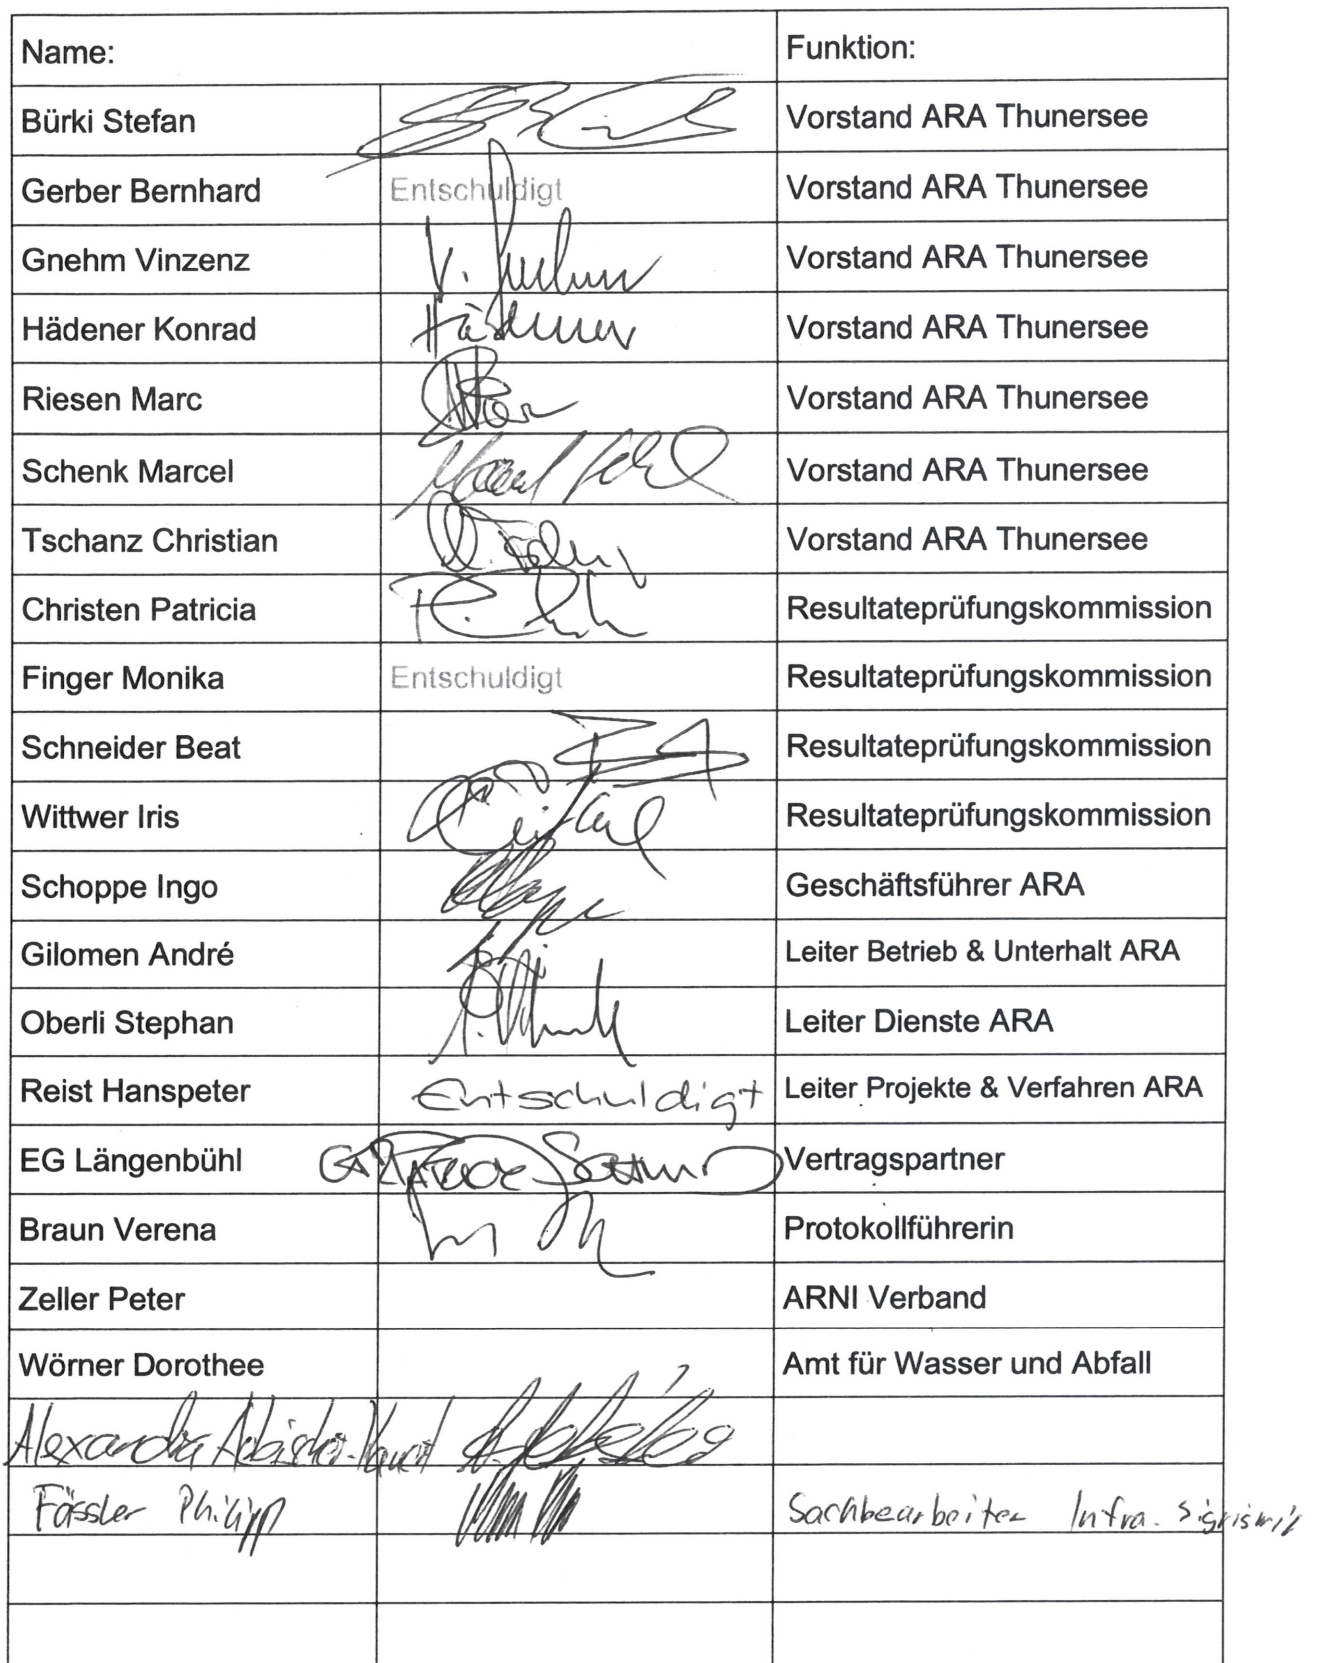 Name: Funktion:
Bürki Stefan Vorstand ARA Thunersee
Gerber Bernhard Entschuldigt Vorstand ARA Thunersee
Gnehm Vinzenz V. Vorstand ARA Thunersee
Hädener Konrad Hädener Vorstand ARA Thunersee
Riesen Marc Vorstand ARA Thunersee
Schenk Marcel Vorstand ARA Thunersee
Tschanz Christian Vorstand ARA Thunersee
Christen Patricia Resultateprüfungskommission
Finger Monika Entschuldigt Resultateprüfungskommission
Schneider Beat Resultateprüfungskommission
Wittwer Iris Resultateprüfungskommission
Schoppe Ingo Geschäftsführer ARA
Gilomen André Leiter Betrieb & Unterhalt ARA
Oberli Stephan Leiter Dienste ARA
Reist Hanspeter Entschuldigt Leiter Projekte & Verfahren ARA
EG Längenbühl Vertragspartner
Braun Verena Protokollführerin
Zeller Peter ARNI Verband
Wörner Dorothee Amt für Wasser und Abfall
Alexandra
Fässler Philipp Sachbearbeiter Infra. Sigriswil